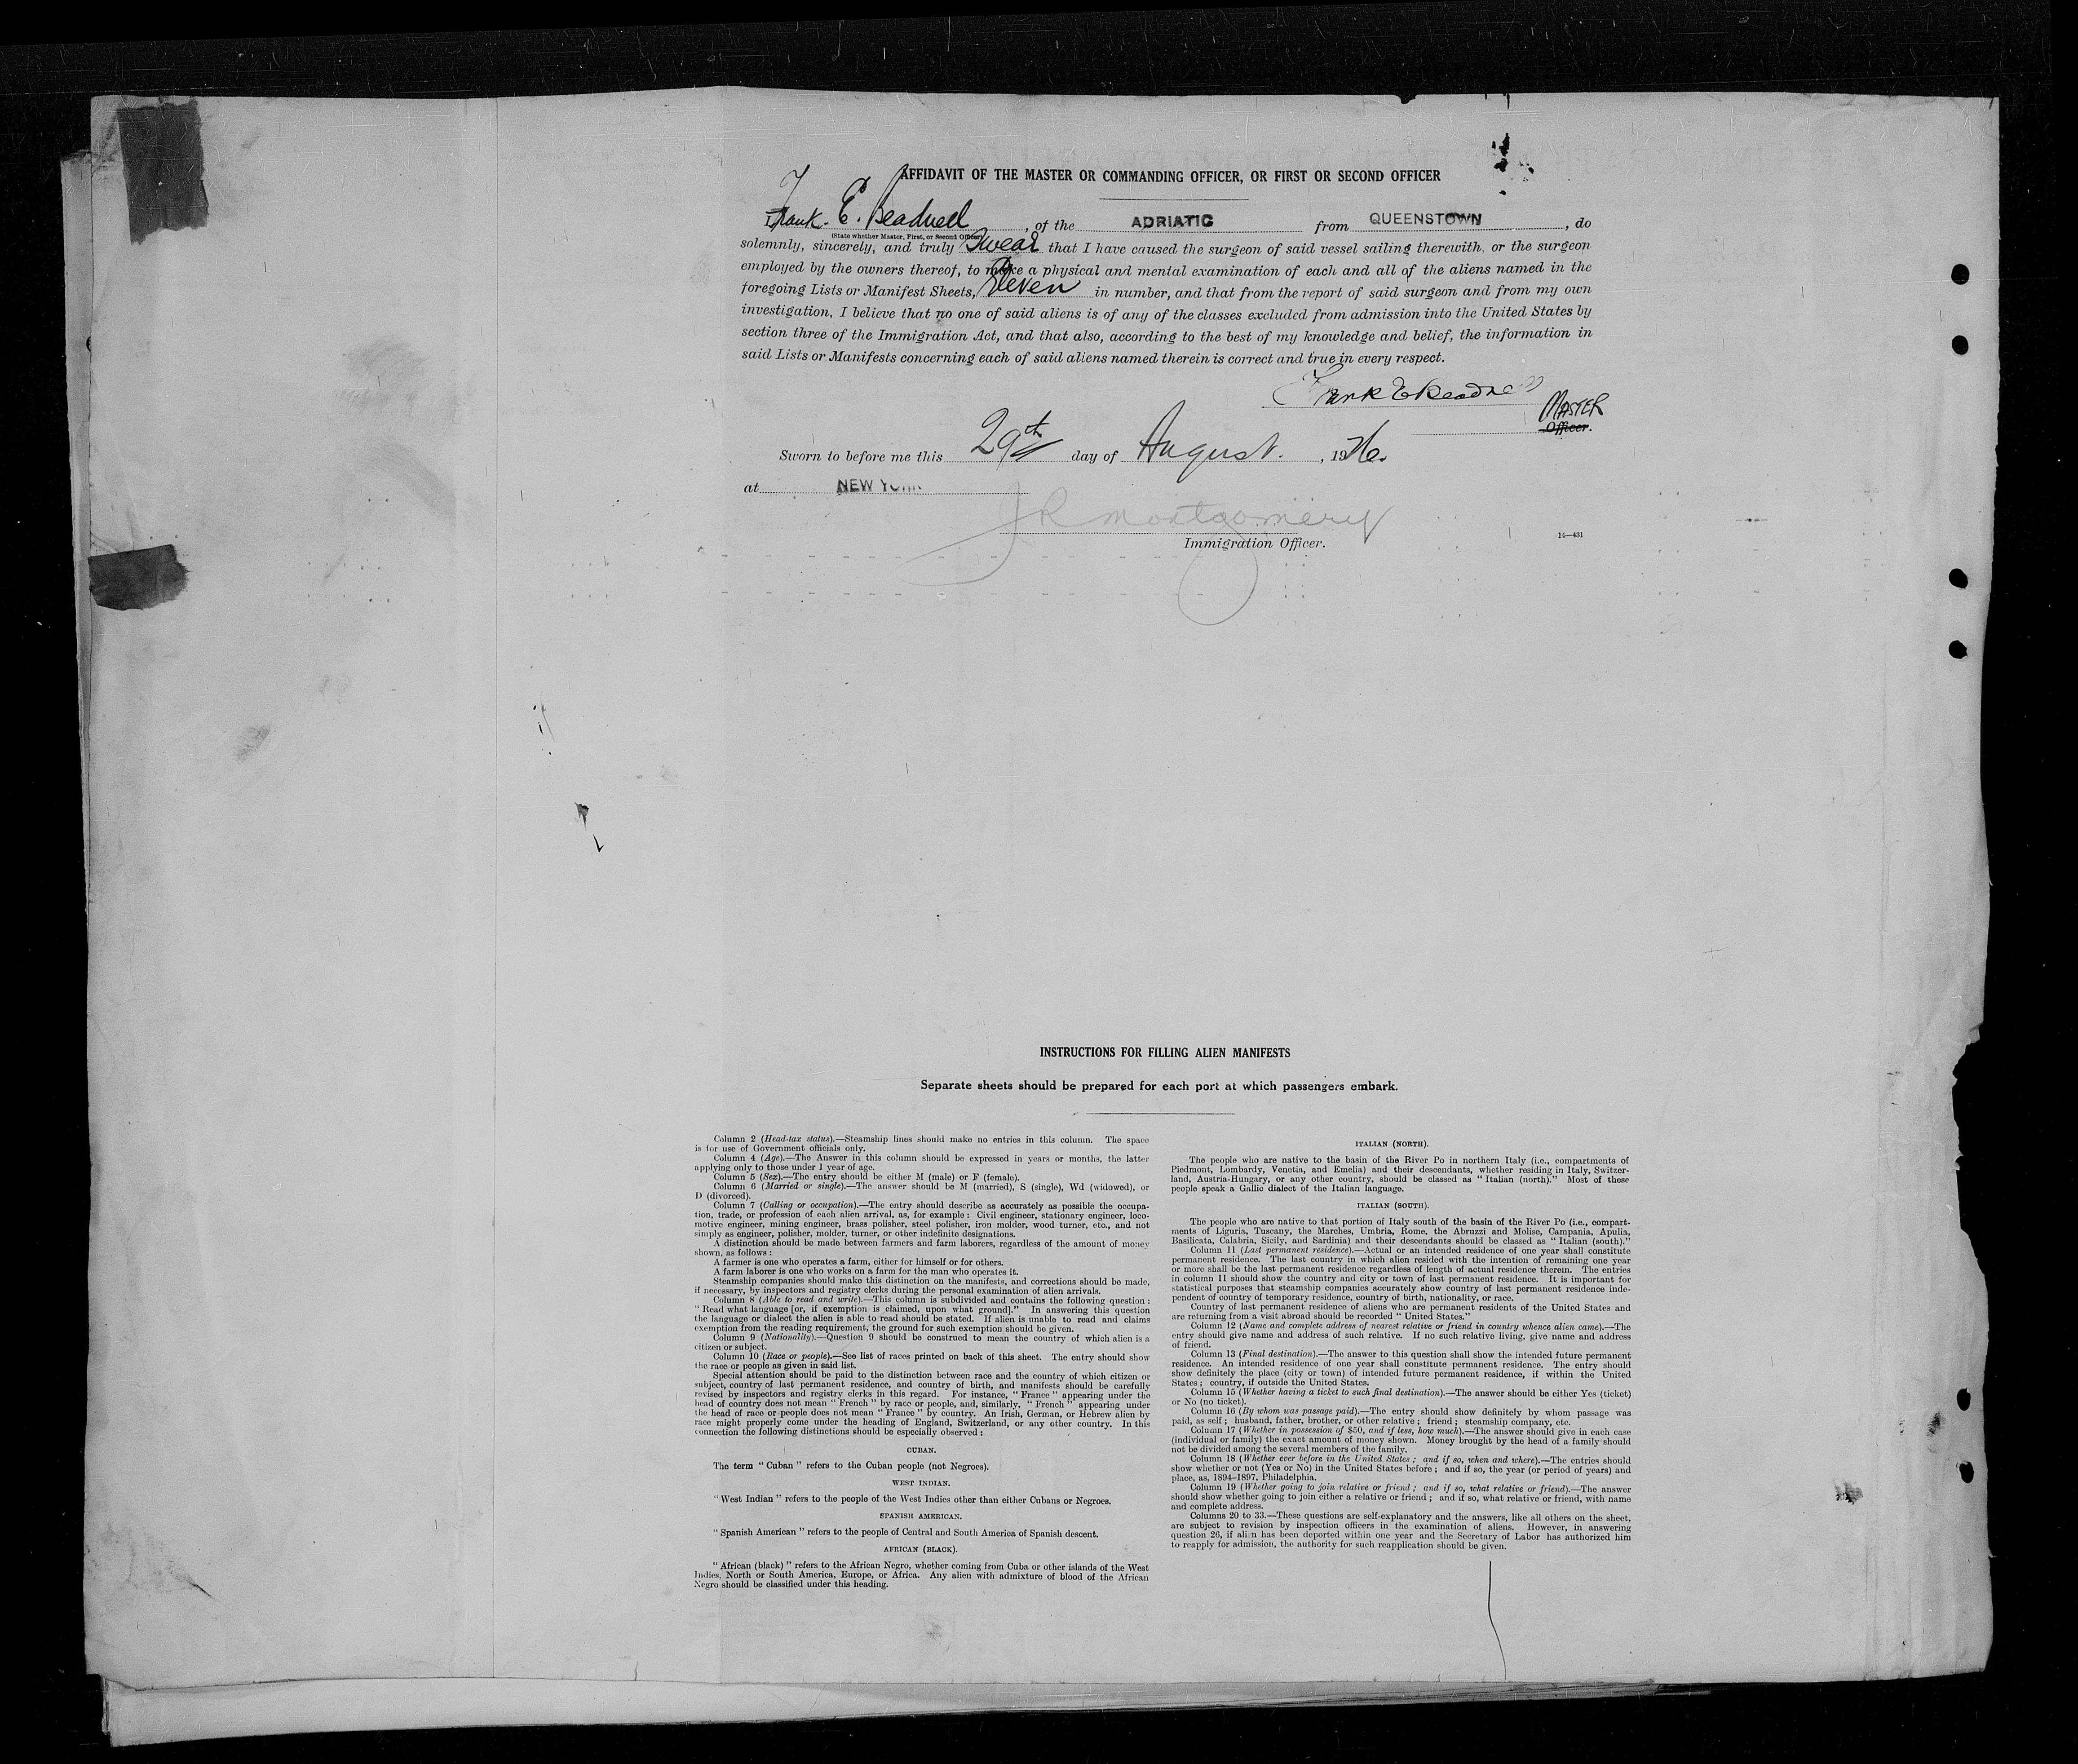 AFFIDAVIT OF THE MASTER OR COMMANDING OFFICER, OR FIRST OR SECOND OFFICER
I, Frank. E. Beadnell, of the ADRIATIC from QUEENSTOWN, do
(State whether Master, First, or Second Officer)
solemnly, sincerely, and truly Swear that I have caused the surgeon of said vessel sailing therewith, or the surgeon
employed by the owners thereof, to make a physical and mental examination of each and all of the aliens named in the
foregoing Lists or Manifest Sheets, Eleven in number, and that from the report of said surgeon and from my own
investigation, I believe that no one of said aliens is of any of the classes excluded from admission into the United States by
section three of the Immigration Act, and that also, according to the best of my knowledge and belief, the information in
said Lists or Manifests concerning each of said aliens named therein is correct and true in every respect.
Frank E Beadnell
MASTER
Officer.
Sworn to before me this 29th day of August., 1926.
at NEW YORK
J R Montgomery
Immigration Officer.
14—431
INSTRUCTIONS FOR FILLING ALIEN MANIFESTS
Separate sheets should be prepared for each port at which passengers embark.
Column 2 (Head-tax status).—Steamship lines should make no entries in this column. The space
is for use of Government officials only.
Column 4 (Age).—The Answer in this column should be expressed in years or months, the latter
applying only to those under 1 year of age.
Column 5 (Sex).—The entry should be either M (male) or F (female).
Column 6 (Married or single).—The answer should be M (married), S (single), Wd (widowed), or
D (divorced).
Column 7 (Calling or occupation).—The entry should describe as accurately as possible the occupa-
tion, trade, or profession of each alien arrival, as, for example: Civil engineer, stationary engineer, loco-
motive engineer, mining engineer, brass polisher, steel polisher, iron molder, wood turner, etc., and not
simply as engineer, polisher, molder, turner, or other indefinite designations.
A distinction should be made between farmers and farm laborers, regardless of the amount of money
shown, as follows:
A farmer is one who operates a farm, either for himself or for others.
A farm laborer is one who works on a farm for the man who operates it.
Steamship companies should make this distinction on the manifests, and corrections should be made,
if necessary, by inspectors and registry clerks during the personal examination of alien arrivals.
Column 8 (Able to read and write).—This column is subdivided and contains the following question:
"Read what language [or, if exemption is claimed, upon what ground]." In answering this question
the language or dialect the alien is able to read should be stated. If alien is unable to read and claims
exemption from the reading requirement, the ground for such exemption should be given.
Column 9 (Nationality).—Question 9 should be construed to mean the country of which alien is a
citizen or subject.
Column 10 (Race or people).—See list of races printed on back of this sheet. The entry should show
the race or people as given in said list.
Special attention should be paid to the distinction between race and the country of which citizen or
subject, country of last permanent residence, and country of birth, and manifests should be carefully
revised by inspectors and registry clerks in this regard. For instance, "France" appearing under the
head of country does not mean "French" by race or people, and, similarly, "French" appearing under
the head of race or people does not mean "France" by country. An Irish, German, or Hebrew alien by
race might properly come under the heading of England, Switzerland, or any other country. In this
connection the following distinctions should be especially observed:
CUBAN.
The term "Cuban" refers to the Cuban people (not Negroes).
WEST INDIAN.
"West Indian" refers to the people of the West Indies other than either Cubans or Negroes.
SPANISH AMERICAN.
"Spanish American" refers to the people of Central and South America of Spanish descent.
AFRICAN (BLACK).
"African (black)" refers to the African Negro, whether coming from Cuba or other islands of the West
Indies, North or South America, Europe, or Africa. Any alien with admixture of blood of the African
Negro should be classified under this heading.
ITALIAN (NORTH).
The people who are native to the basin of the River Po in northern Italy (i.e., compartments of
Piedmont, Lombardy, Venetia, and Emelia) and their descendants, whether residing in Italy, Switzer-
land, Austria-Hungary, or any other country, should be classed as "Italian (north)." Most of these
people speak a Gallic dialect of the Italian language.
ITALIAN (SOUTH).
The people who are native to that portion of Italy south of the basin of the River Po (i.e., compart-
ments of Liguria, Tuscany, the Marches, Umbria, Rome, the Abruzzi and Molise, Campania, Apulia,
Basilicata, Calabria, Sicily, and Sardinia) and their descendants should be classed as "Italian (south)."
Column 11 (Last permanent residence).—Actual or an intended residence of one year shall constitute
permanent residence. The last country in which alien resided with the intention of remaining one year
or more shall be the last permanent residence regardless of length of actual residence therein. The entries
in column 11 should show the country and city or town of last permanent residence. It is important for
statistical purposes that steamship companies accurately show country of last permanent residence inde-
pendent of country of temporary residence, country of birth, nationality, or race.
Country of last permanent residence of aliens who are permanent residents of the United States and
are returning from a visit abroad should be recorded "United States."
Column 12 (Name and complete address of nearest relative or friend in country whence alien came).—The
entry should give name and address of such relative. If no such relative living, give name and address
of friend.
Column 13 (Final destination).—The answer to this question shall show the intended future permanent
residence. An intended residence of one year shall constitute permanent residence. The entry should
show definitely the place (city or town) of intended future permanent residence, if within the United
States; country, if outside the United States.
Column 15 (Whether having a ticket to such final destination).—The answer should be either Yes (ticket)
or No (no ticket).
Column 16 (By whom was passage paid).—The entry should show definitely by whom passage was
paid, as self; husband, father, brother, or other relative; friend; steamship company, etc.
Column 17 (Whether in possession of $50, and if less, how much).—The answer should give in each case
(individual or family) the exact amount of money shown. Money brought by the head of a family should
not be divided among the several members of the family.
Column 18 (Whether ever before in the United States; and if so, when and where).—The entries should
show whether or not (Yes or No) in the United States before; and if so, the year (or period of years) and
place, as, 1894-1897, Philadelphia.
Column 19 (Whether going to join relative or friend; and if so, what relative or friend).—The answer
should show whether going to join either a relative or friend; and if so, what relative or friend, with name
and complete address.
Columns 20 to 33.—These questions are self-explanatory and the answers, like all others on the sheet,
are subject to revision by inspection officers in the examination of aliens. However, in answering
question 26, if alien has been deported within one year and the Secretary of Labor has authorized him
to reapply for admission, the authority for such reapplication should be given.